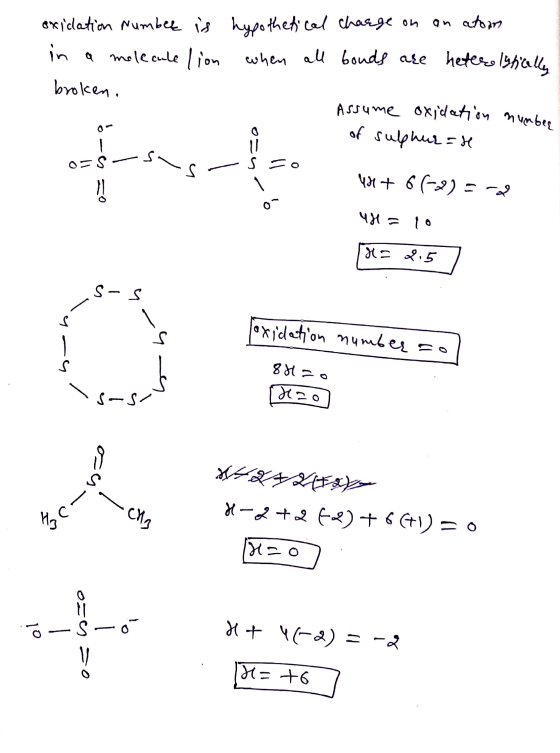 oxidation Number is hypothetical charge on an atom
in a molecule / ion when all bonds are heterolytically
broken.
Assume oxidation number
of sulphur = x
O⁻
O=S—S
S—S=O
O
O
O⁻
4x + 6(-2) = -2
4x = 10
x = 2.5
S-S
S
S
S
S
S-S
oxidation number = 0
8x = 0
x = 0
O
S
H₃C
CH₃
x - 2 + 2(-2) + 6(+1) = 0
x = 0
O
⁻O—S—O⁻
O
x + 4(-2) = -2
x = +6